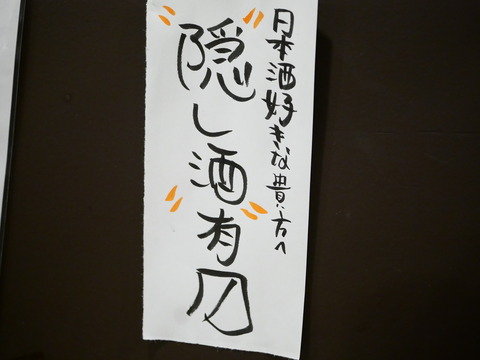 日本酒好きな貴方へ
隠し酒有〼